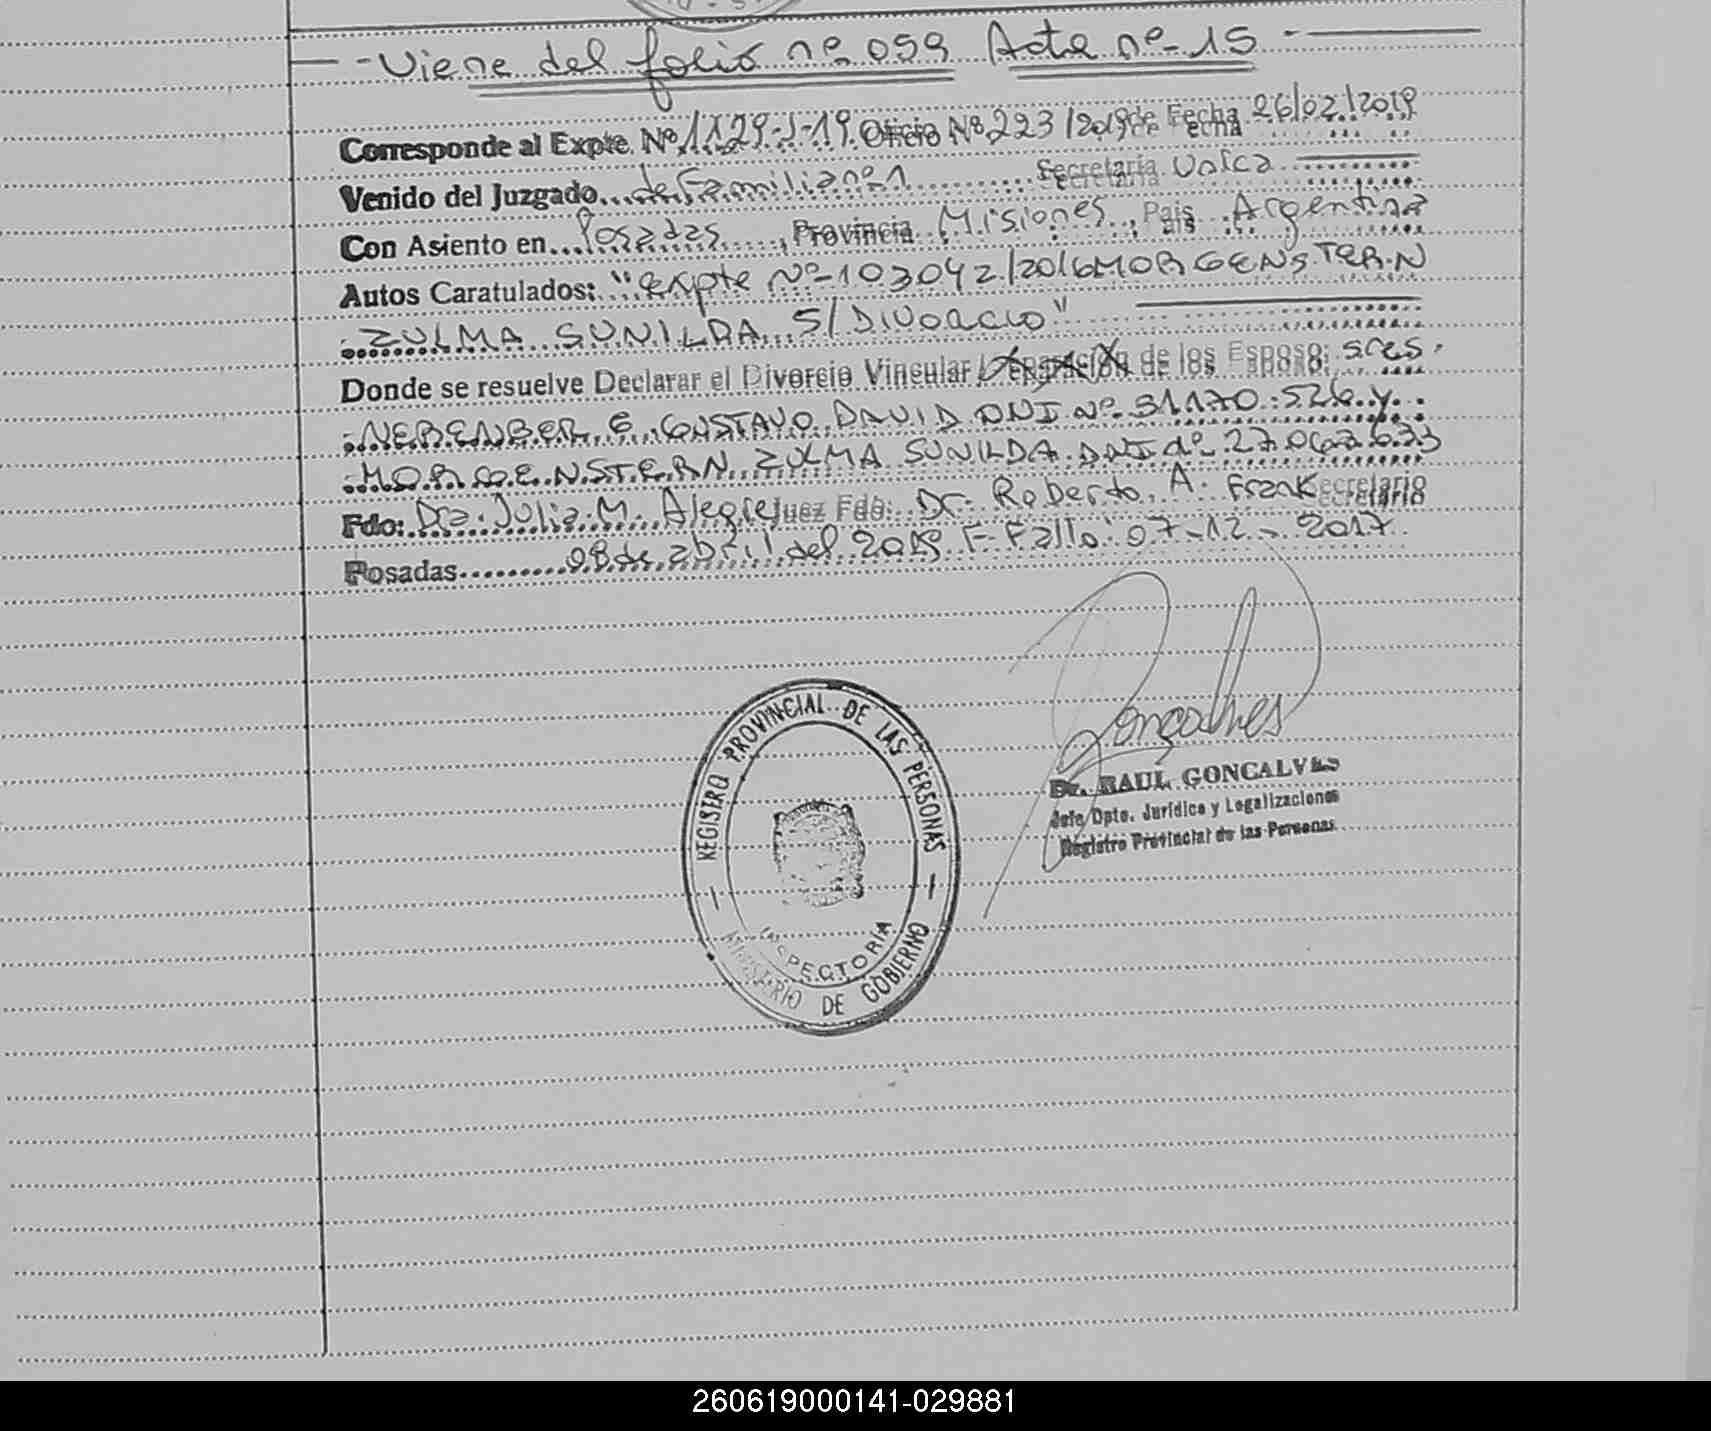 Viene del folio nº 059 Acta nº 15
Corresponde al Expte. Nº 1129-J-19. Oficio Nº 223/2019 de Fecha 26/02/2019
Venido del Juzgado de Familia nº 1 Secretaria Unica
Con Asiento en Posadas, Provincia Misiones, Pais Argentina
Autos Caratulados: "expte Nº 103042/2016 MORGENSTERN
ZULMA SUNILDA S/ DIVORCIO"
Donde se resuelve Declarar el Divorcio Vincular / Separación de los Esposo: sres.
GUSTAVO DAVID DNI Nº 31.170.526 y
MORGENSTERN ZULMA SUNILDA DNI nº
Fdo: Dra. Julia M. Alegre Juez Fdo: Dr. Roberto A. Frank Secretario
Posadas 08 de abril del 2019 F. Fallo: 07-12-2017
REGISTRO PROVINCIAL DE LAS PERSONAS
INSPECTORIA
MINISTERIO DE GOBIERNO
Goncalves
Dr. RAUL GONCALVES
Jefe Dpto. Jurídico y Legalizaciones
Registro Provincial de las Personas
260619000141-029881